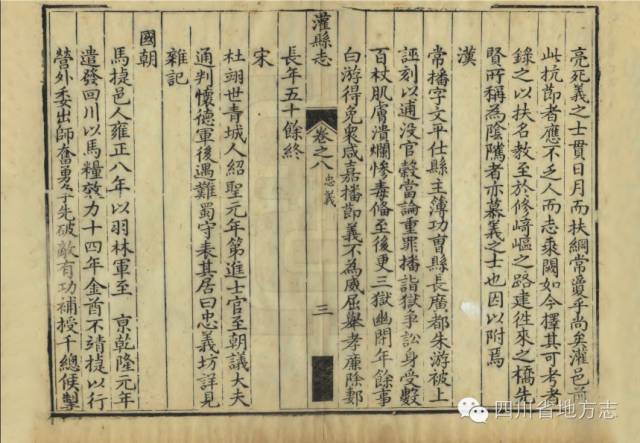 亮死義之士貫日月而扶綱常邈乎尚矣灌邑
此抗節者應不乏人而志乘闕如今擇其可考者
錄之以扶名教至於修﨑嶇之路建徃來之橋先
賢所稱為陰隲者亦慕義之士也因以附焉
漢
常播字文平仕縣主簿功曹縣長廣都朱游被上
誣刻以逋没官穀當論重罪播詣獄爭訟身受數
百杖肌膚潰爛慘毒備至後更三獄幽閉年餘事
白游得免衆咸嘉播節義不為威屈舉孝廉除郪
長年五十餘終
灌縣志
卷之八
忠義
三
宋
杜翊世青城人紹聖元年第進士官至朝議大夫
通判懷德軍後遇難蜀守表其居曰忠義坊詳見
雜記
國朝
馬㨗邑人雍正八年以羽林軍至 京乾隆元年
遣發回川以馬糧效力十四年金酋不靖㨗以行
營外委出師奮勇爭先破敵有功補授千總候掣
四川省地方志